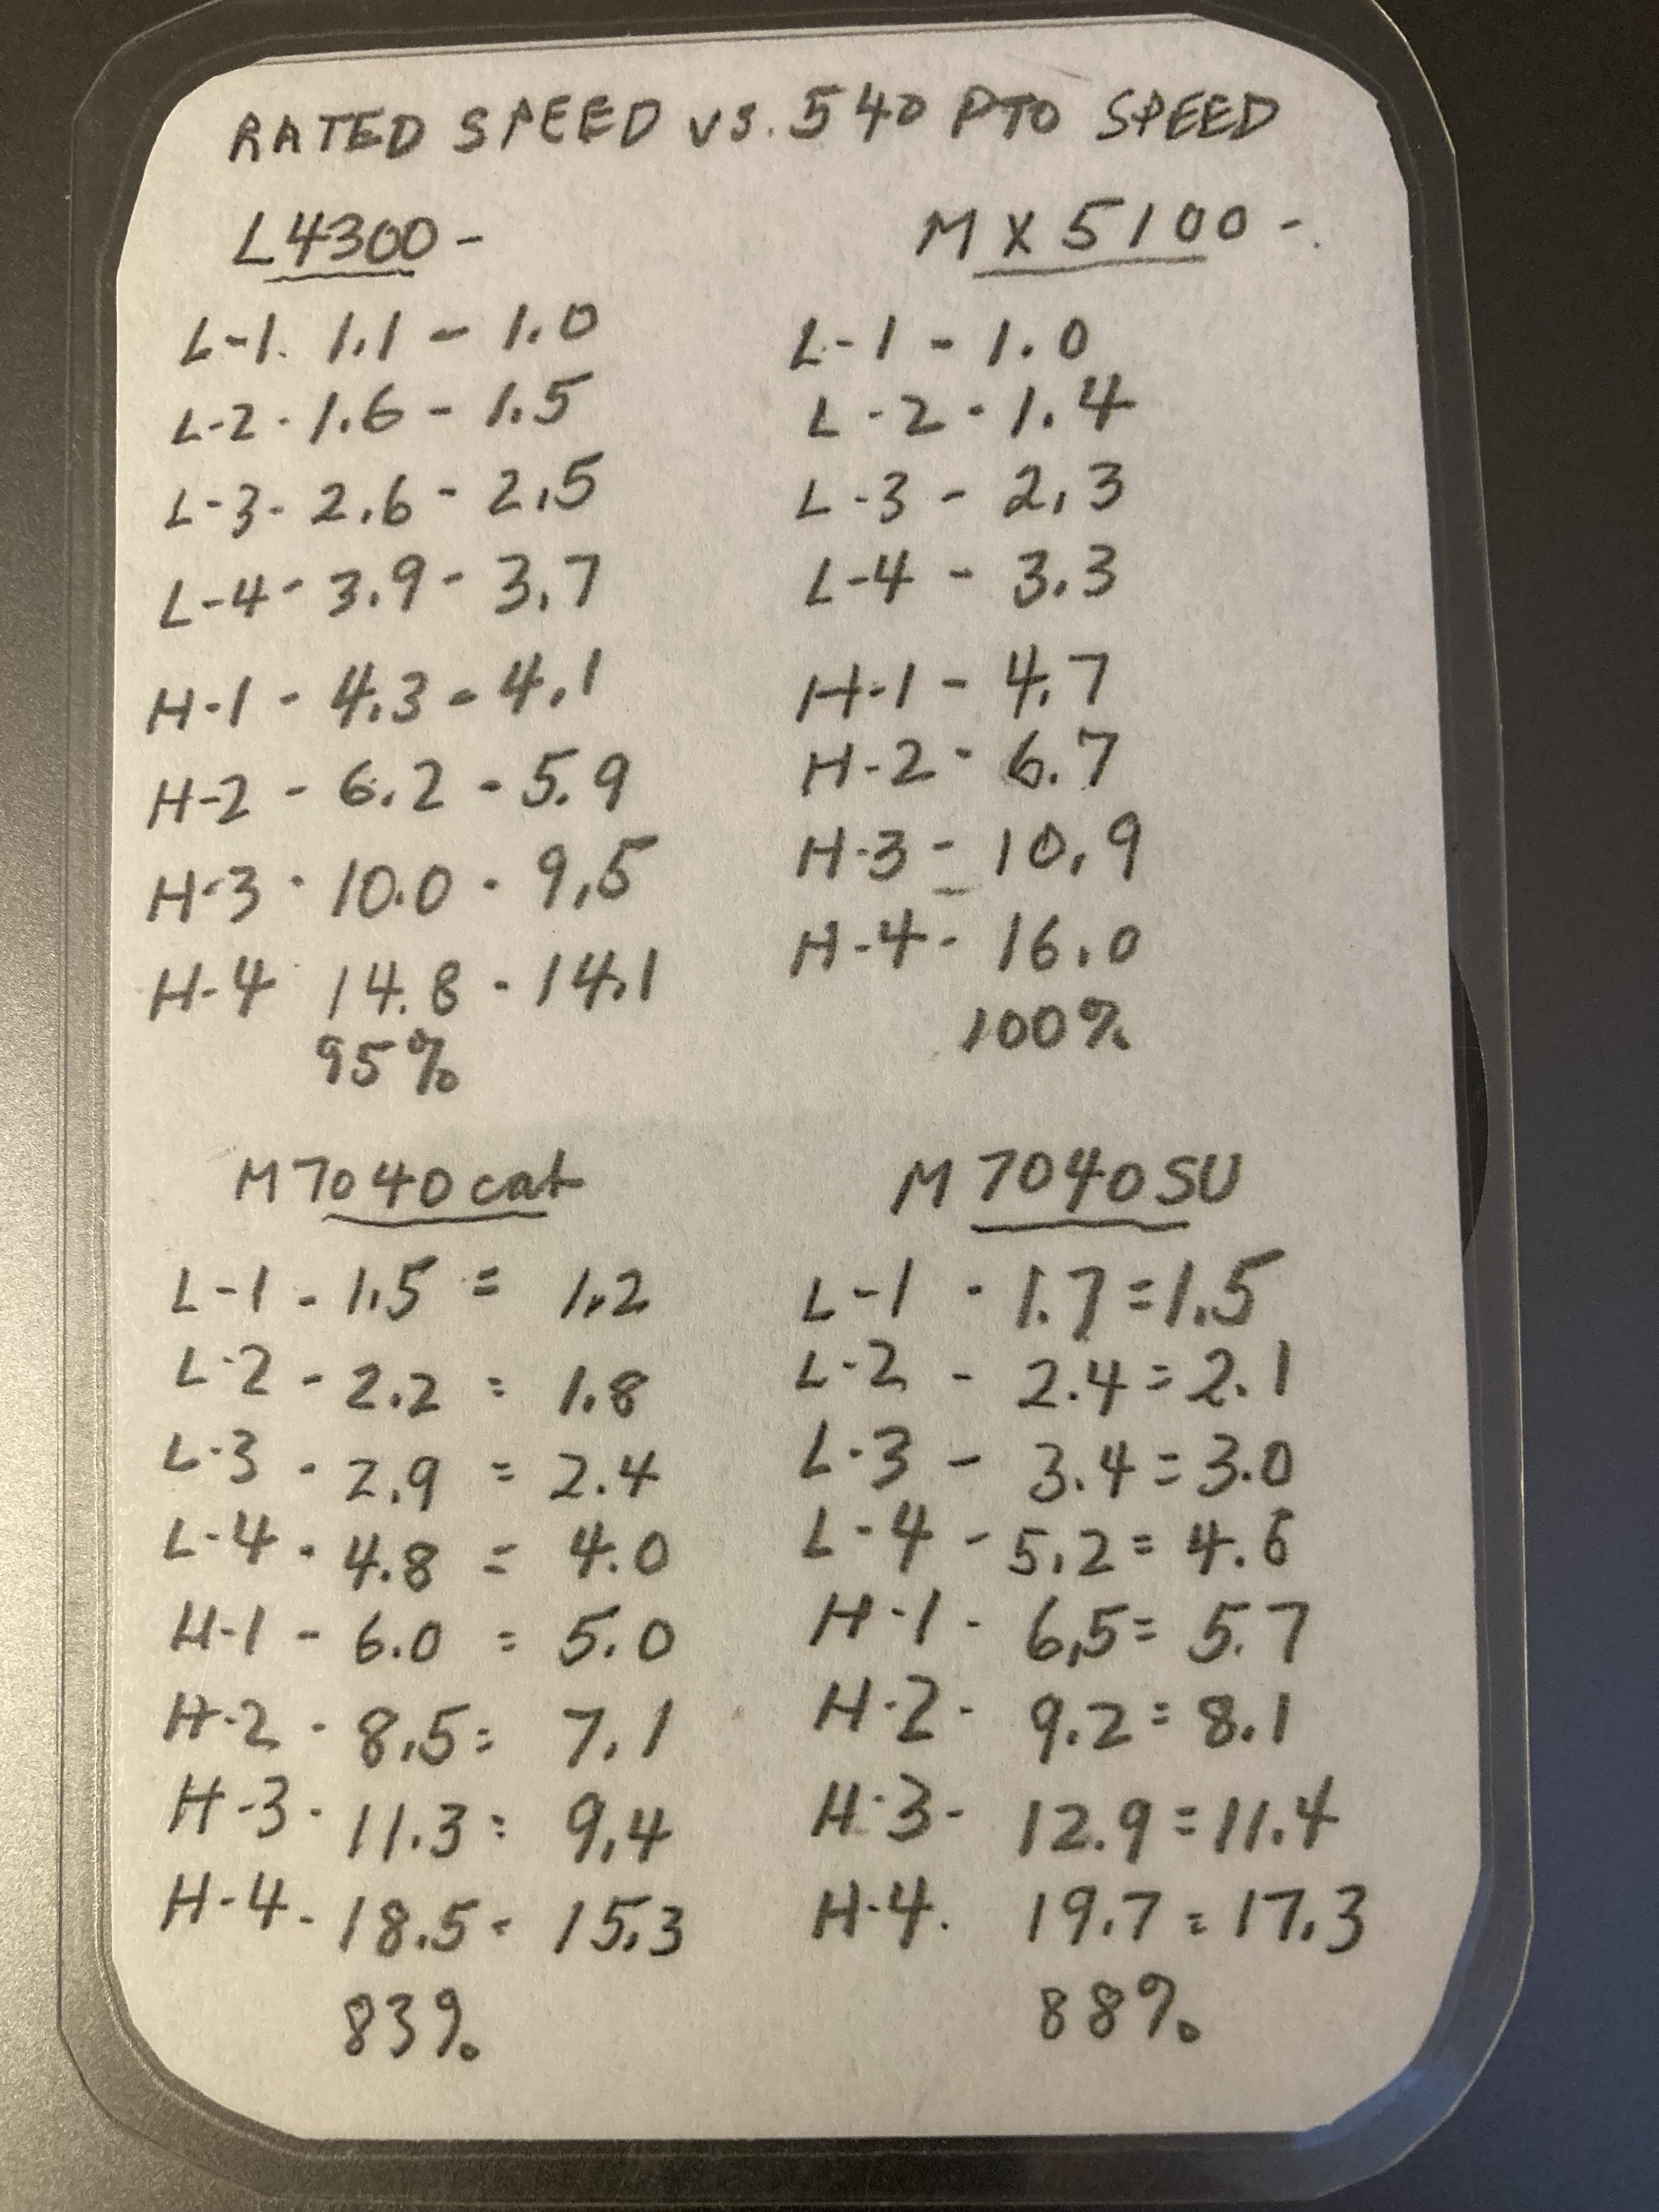 RATED SPEED vs. 540 PTO SPEED
L4300 -
L-1. 1.1 - 1.0
L-2 - 1.6 - 1.5
L-3 - 2.6 - 2.5
L-4 - 3.9 - 3.7
H-1 - 4.3 - 4.1
H-2 - 6.2 - 5.9
H-3 - 10.0 - 9.5
H-4 14.8 - 14.1
95%
MX5100 -
L-1 - 1.0
L-2 - 1.4
L-3 - 2.3
L-4 - 3.3
H-1 - 4.7
H-2 - 6.7
H-3 - 10.9
H-4 - 16.0
100%
M7040 cat
L-1 - 1.5 = 1.2
L-2 - 2.2 = 1.8
L-3 - 2.9 = 2.4
L-4 - 4.8 = 4.0
H-1 - 6.0 = 5.0
H-2 - 8.5 = 7.1
H-3 - 11.3 = 9.4
H-4 - 18.5 = 15.3
83%
M7040SU
L-1 - 1.7 = 1.5
L-2 - 2.4 = 2.1
L-3 - 3.4 = 3.0
L-4 - 5.2 = 4.6
H-1 - 6.5 = 5.7
H-2 - 9.2 = 8.1
H-3 - 12.9 = 11.4
H-4. 19.7 = 17.3
88%